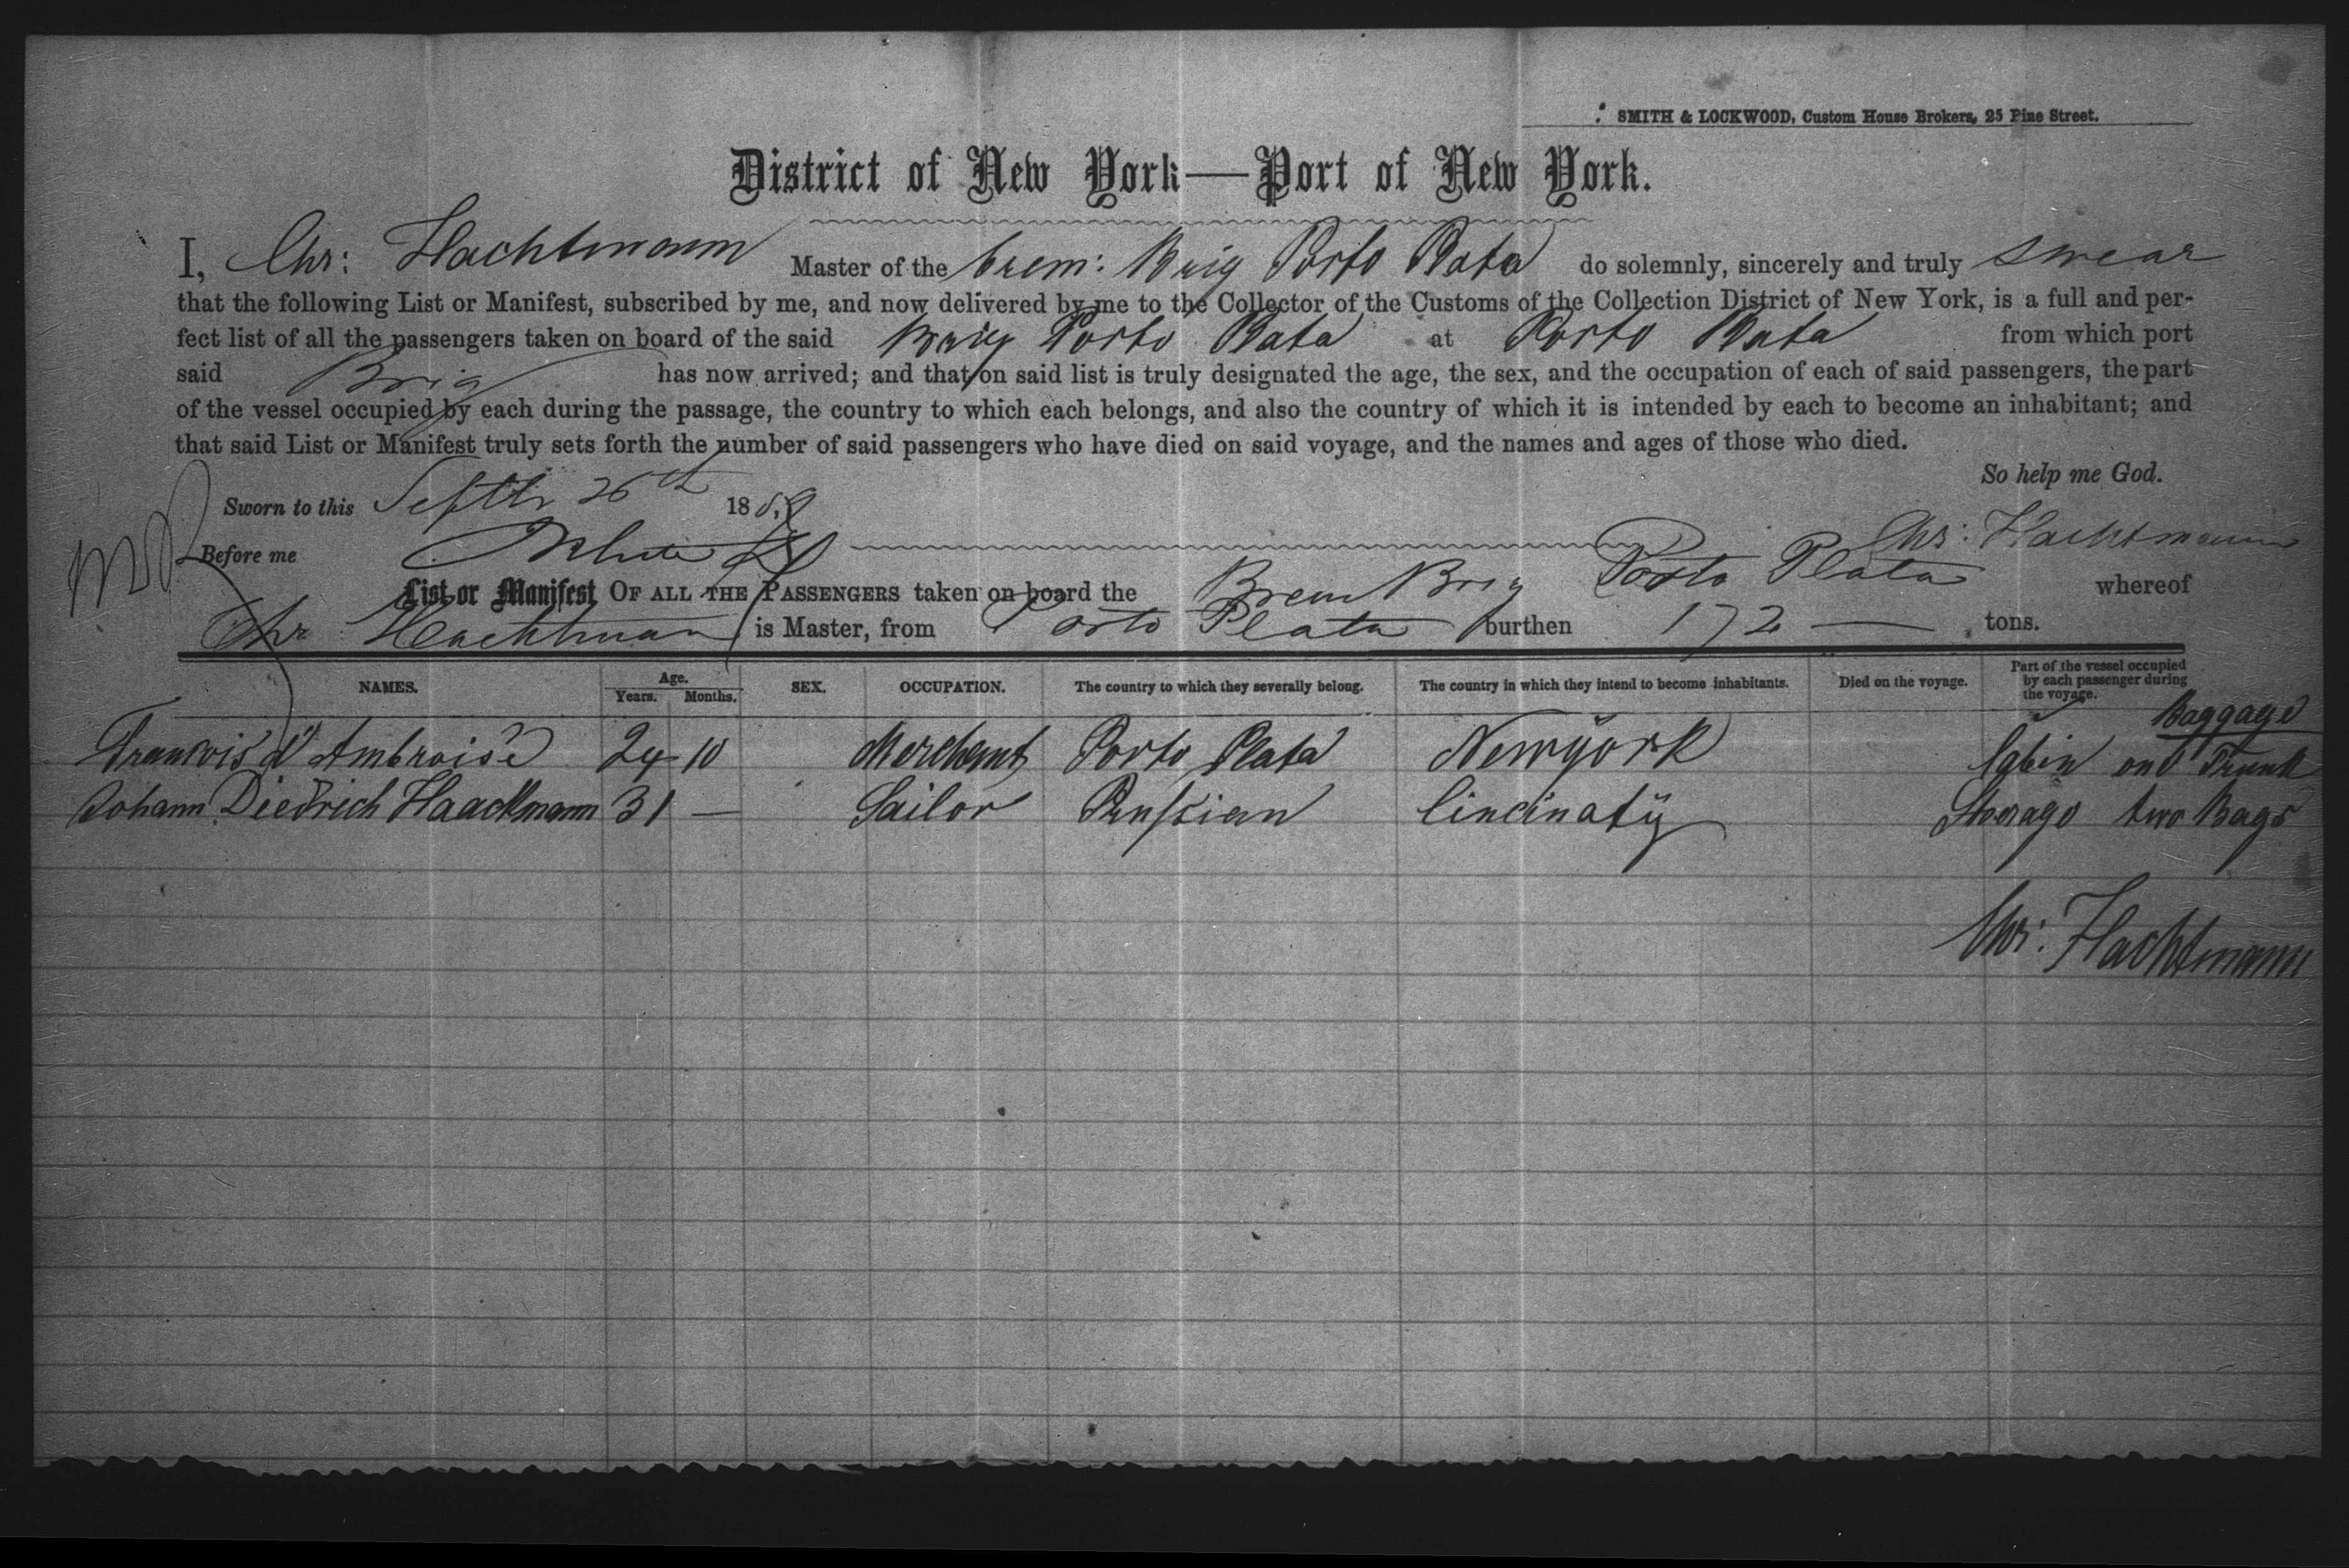 SMITH & LOCKWOOD, Custom House Brokers, 25 Pine Street.
District of New York—Port of New York.
I, Chr: Hachtmann Master of the brem: Brig Porto Plata do solemnly, sincerely and truly swear
that the following List or Manifest, subscribed by me, and now delivered by me to the Collector of the Customs of the Collection District of New York, is a full and per-
fect list of all the passengers taken on board of the said Brig Porto Plata at Porto Plata from which port
said Brig has now arrived; and that on said list is truly designated the age, the sex, and the occupation of each of said passengers, the part
of the vessel occupied by each during the passage, the country to which each belongs, and also the country of which it is intended by each to become an inhabitant; and
that said List or Manifest truly sets forth the number of said passengers who have died on said voyage, and the names and ages of those who died.
So help me God.
Sworn to this Septbr 26th 18
Before me Chr: Hachtmann
List or Manifest OF ALL THE PASSENGERS taken on board the Brem Brig Porto Plata whereof
Chr Hachtman is Master, from Porto Plata burthen 172 — tons.
NAMES. Age. Years. Months. SEX. OCCUPATION. The country to which they severally belong. The country in which they intend to become inhabitants. Died on the voyage. Part of the vessel occupied by each passenger during the voyage.
Baggage
Francois d'Ambroise 24 10 Merchant Porto Plata Newyork Cabin one Trunk
Johann Diedrich Haackmann 31 — Sailor Prussian Cincinaty Sterage two Bags
Chr: Hachtmann